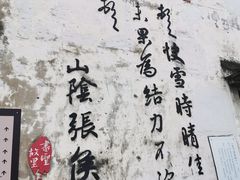 快雪時晴佳
未果為結力不次
山陰張侯
書聖
故里